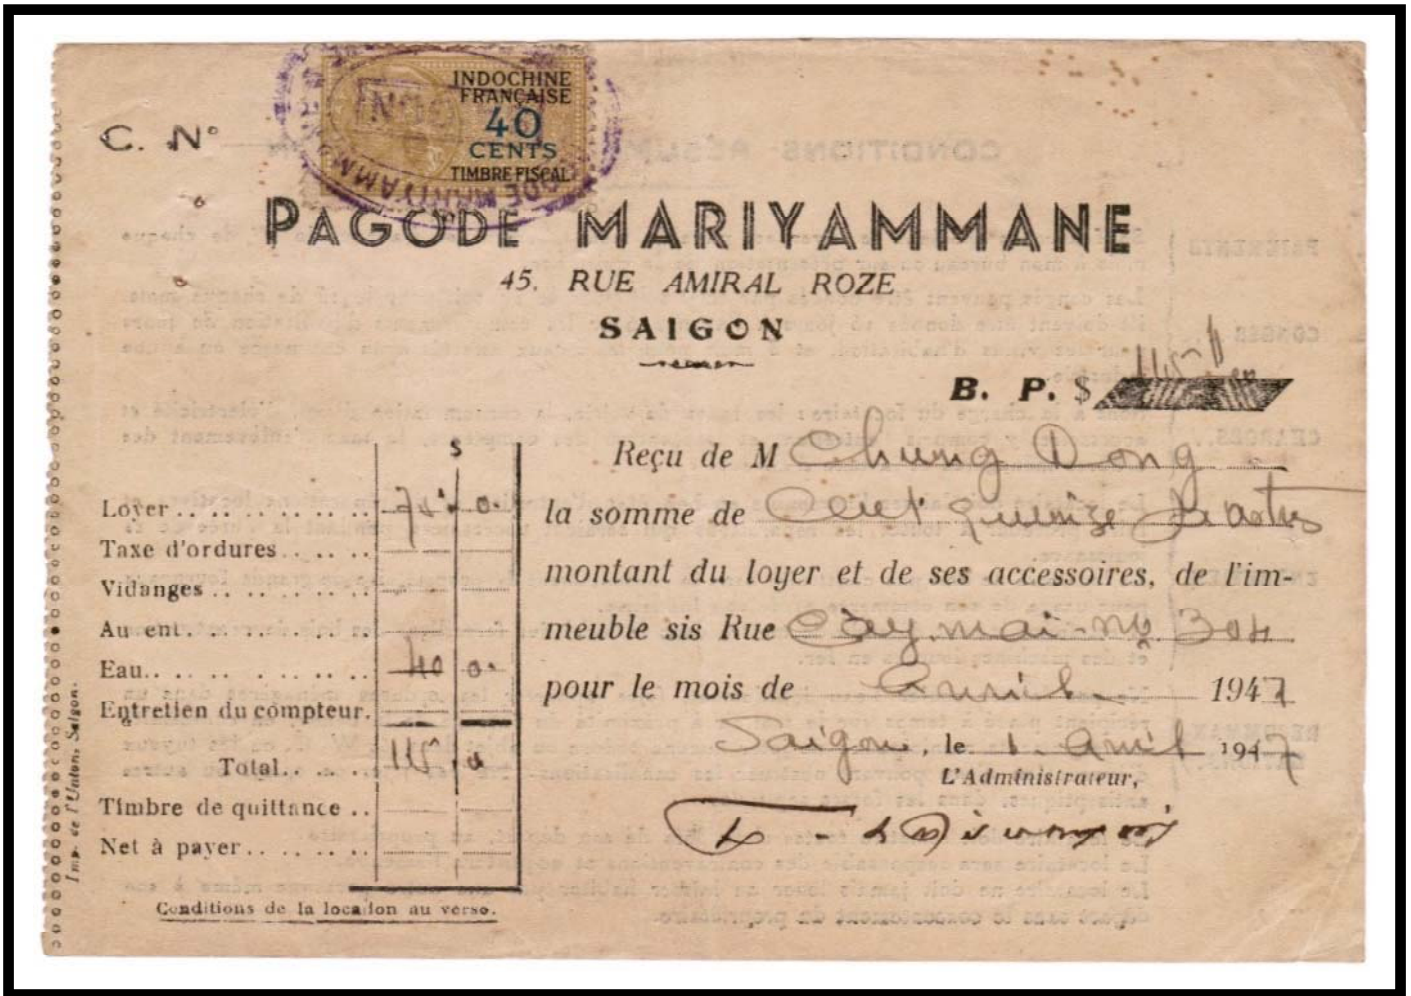 INDOCHINE
FRANÇAISE
40
CENTS
TIMBRE FISCAL
C. N°
PAGODE MARIYAMMANE
45, RUE AMIRAL ROZE
SAIGON
B. P. $ 115
Reçu de M Chung Dong
la somme de Cent quinze piastres
montant du loyer et de ses accessoires, de l'im-
meuble sis Rue Càymai nº 304
pour le mois de Avril 1947
Saigon, le 1 Avril 1947
L'Administrateur,
$
Loyer
Taxe d'ordures
Vidanges
Au ent
Eau 40 0
Entretien du compteur.
Total 115 0
Timbre de quittance
Net à payer
Conditions de la location au verso.
Imp. de l'Union, Saigon.